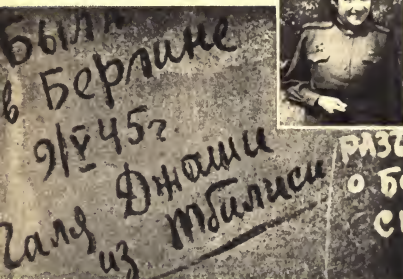 Была
в Берлине
9/V 45г
Галя Джаши
из Тбилиси